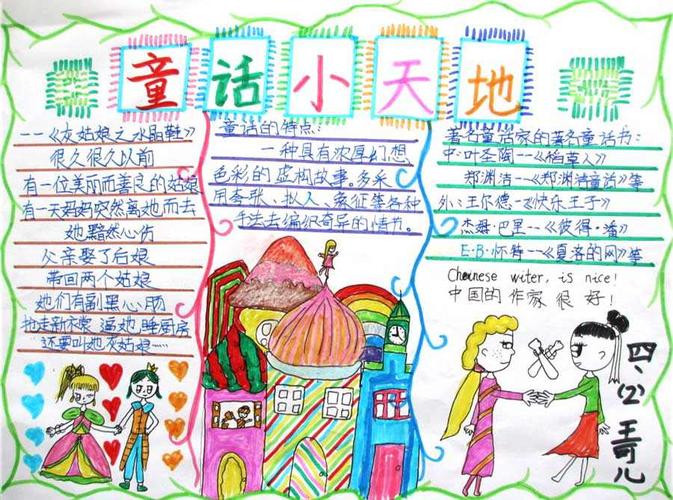 童话小天地
--《灰姑娘之水晶鞋》
很久很久以前
有一位美丽而善良的姑娘
有一天妈妈突然离她而去
她黯然心伤
父亲娶了后娘
带回两个姑娘
她们有副黑心肠
抢走新衣裳 逼她睡厨房
还要叫她灰姑娘……
童话的特点:
一种具有浓厚幻想
色彩的虚构故事。多采
用夸张、拟人、象征等各种
手法去编织奇异的情节。
著名童话家的著名童话书:
中:叶圣陶--《稻草人》
郑渊洁--《郑渊洁童话》等
外:王尔德--《快乐王子》
杰姆·巴里--《彼得·潘》
E·B·怀特--《夏洛的网》等
Cheinese witer, is nice!
中国的作家很好!
四、(2) 王可儿